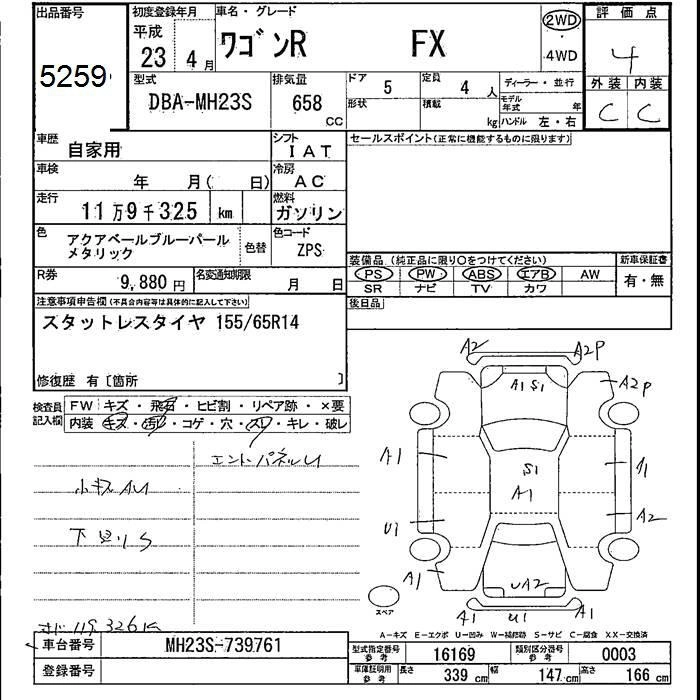 出品番号
5259
初度登録年月
平成
23年 4月
車名・グレード
ワゴンR FX
2WD
4WD
評価点
4
外装 内装
C C
型式
DBA-MH23S
排気量
658
CC
ドア
5
形状
定員
4人
積載
kg
ディーラー・並行
モデル年式 年
ハンドル 左・右
車歴
自家用
シフト
IAT
セールスポイント(正常に機能するものに限ります)
車検
年 月( 日)
冷房
AC
走行
11万9千325 km
燃料
ガソリン
色
アクアベールブルーパール
メタリック
色替
色コード
ZPS
装備品 (純正品に限り○をつけてください)
PS PW ABS エアB AW
SR ナビ TV カワ
新車保証書
有・無
R券
9,880円
名変通知期限
月 日
後日品
注意事項申告欄(不具合内容等は具体的に記入して下さい)
スタットレスタイヤ 155/65R14
修復歴 有〔箇所 〕
検査員記入欄
FW キズ・飛石・ヒビ割・リペア跡・×要
内装 キズ・汚レ・コゲ・穴・スレ・キレ・破レ
小キズAU
下廻りS
A2 A2P
A1 S1
A2P
A1
S1
A1
A1
U1
A2
A1
UA2
A1 U1 A1
スペア
A-キズ E-エクボ U-凹み W-補修跡 S-サビ C-腐食 XX-交換済
車台番号
MH23S-739761
登録番号
型式指定番号
参考
16169
類別区分番号
参考
0003
車庫証明用
参考
長さ 339 cm 幅 147 cm 高さ 166 cm